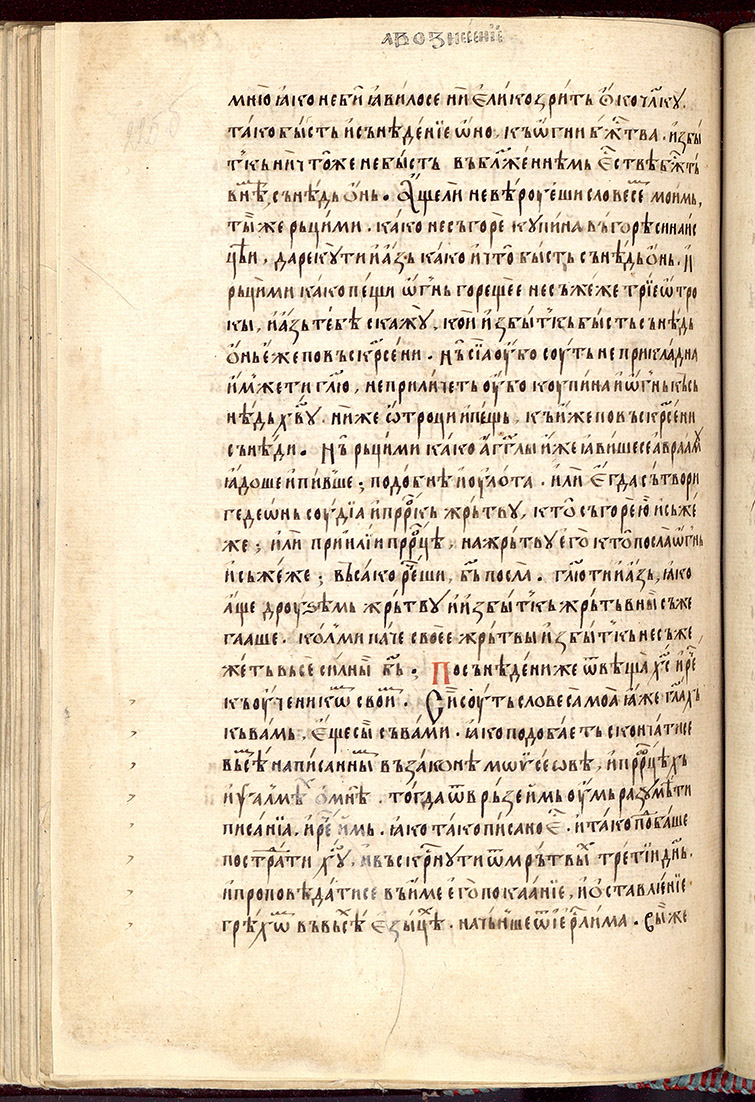 на възнесенїе
мнѡ ꙗко небѝ ꙗвилосе нѝ елико зритъ ѻ́ко чл҃кꙋ.
тако бысть и҆ сънѣденїе ѡ҆но, къ ѡ҆гни бж҃тва. и҆збы
тѡкь ничтоже не бысть въ бл҃женнѣмь е҆ствѣ бж҃тъ
внѣ, сънѣдь ѻ҆нь. Аще ли не вѣроуеши словесе моимь,
ты́ же рьцими. како не съгорѐ кꙋпина въ горѣ синаис
цѣи, да рекꙋ ти и҆ азь како и҆ что̀ бысть сънѣдь ѻ҆нь. И҆
рьцими како пещи ѡ҆гнь горещее не съжеже трїе ѡ҆тро
кы, и҆ азь тебѣ скажꙋ, кои и҆збытⷪкь бысть сънѣдь
ѻ҆нь еже по въскрⷭсени. Нъ̀ сїа оубо соуть не прикладна
и҆мже ти гл҃ю, не приличеть оубо коупина и҆ ѡ҆гнь къ съ
нѣдь хв҃ꙋ. ниже ѡ҆троци и҆ пещь, къ иже по въскрⷭсени
сънѣди. Нъ̀ рьцими како аг҃глы иже ꙗвишесе авраамꙋ
ꙗдоше и҆ пивше; подобнѣ и҆ оу лота. или егда сътвори
гедеѡнь соудїа и҆ прⷪркь жрьтвꙋ, кто̀ съгорѐ ю и҆ съже
же; или при и҆лїи прⷪрцѣ, на жрьтвꙋ его кто̀ посла ѡ҆гнь
и҆ съжеже; въсако речеши, бь҃ посла. гл҃ю ти и҆ азь, ꙗко
аще дроуѕѣмь жрьтвꙋ и҆ и҆збытⷪкь жрьтьвныⷯ съже
глаше. колми паче своее жрьтвы и҆збытⷪкь не съже
жеть высе силны бь҃; По сънѣдени же ѿвѣща хс҃ и҆ рече
къ оученикѡⷨ своиⷨ. Сїи соуть словеса моа ꙗже гл҃ахъ
къ вамь, еще сы съ вами. ꙗко подобаеть скончатисе
въсѣⷨ написанныⷨ въ законѣ мѡѵсеѡвѣ, и҆ прⷪрцѣхь
и҆ ѱалмѣⷯ ѻ҆ мнѣ. тогда ѿврьзе имь оумь разꙋмѣти
писанїа, и҆ рече имь. ꙗко тако писано еⷭ. и҆ тако пⷪⷣбаше
пострⷣати хⷭꙋ, и҆ въскрⷭнꙋти ѿ мрьтвыⷯ третїи днь.
и҆ проповѣдатисе въ име его покаанїе, и҆ ѻ҆ставлѥнїе
грѣхѡⷨ въ въсѣⷯ езыцѣⷯ. начьнше ѿ їерⷭлима. вы́ же